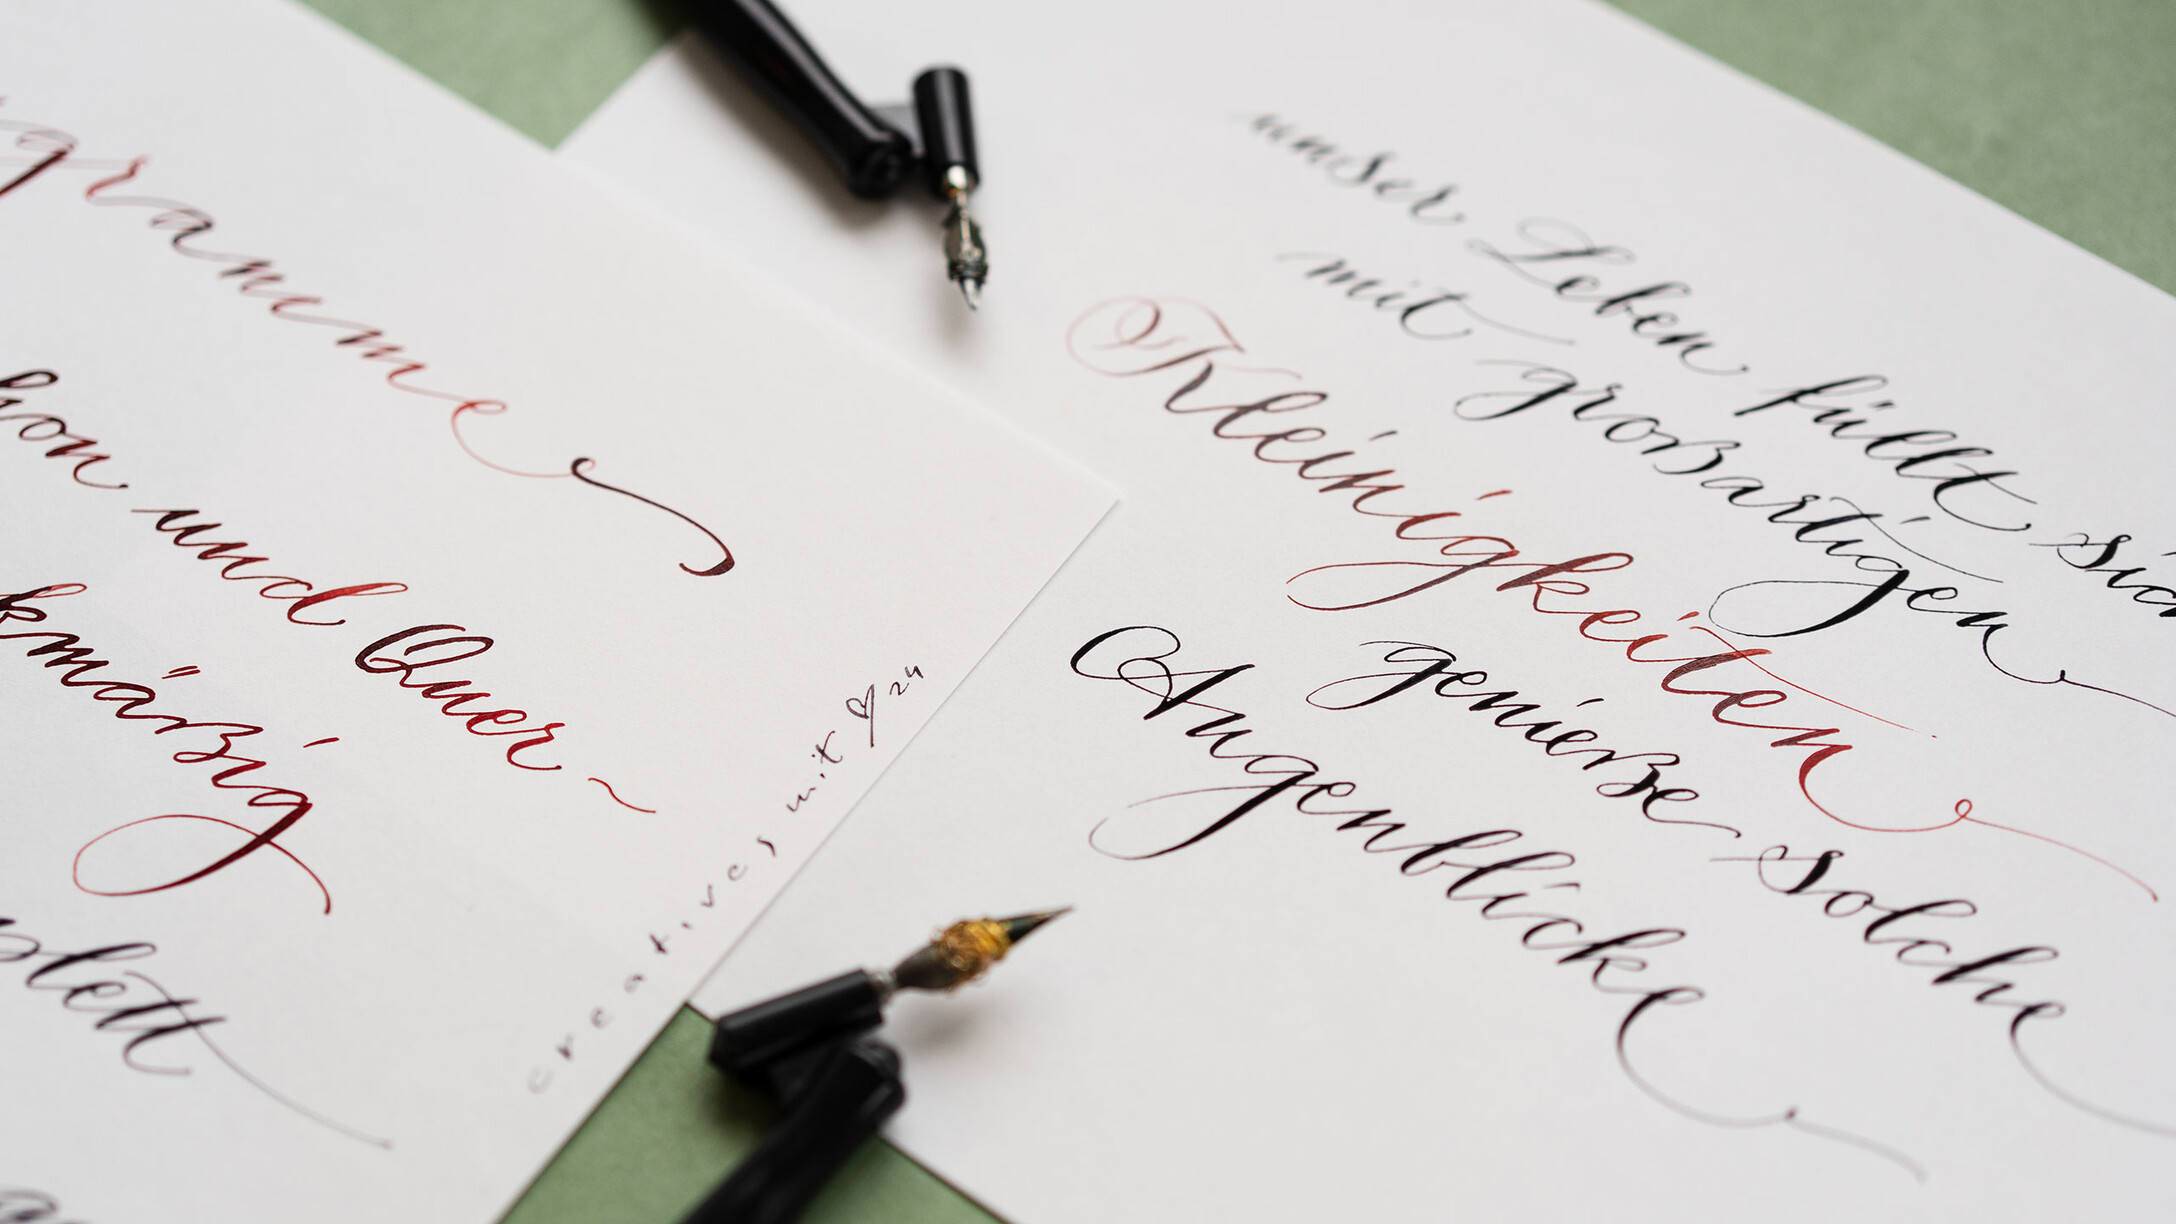 gramme
hon und Quer-
kmäßig
lett
creatives mit ♡ 24
unser Leben füllt sich
mit großartigen
Kleinigkeiten
genieße solche
Augenblicke